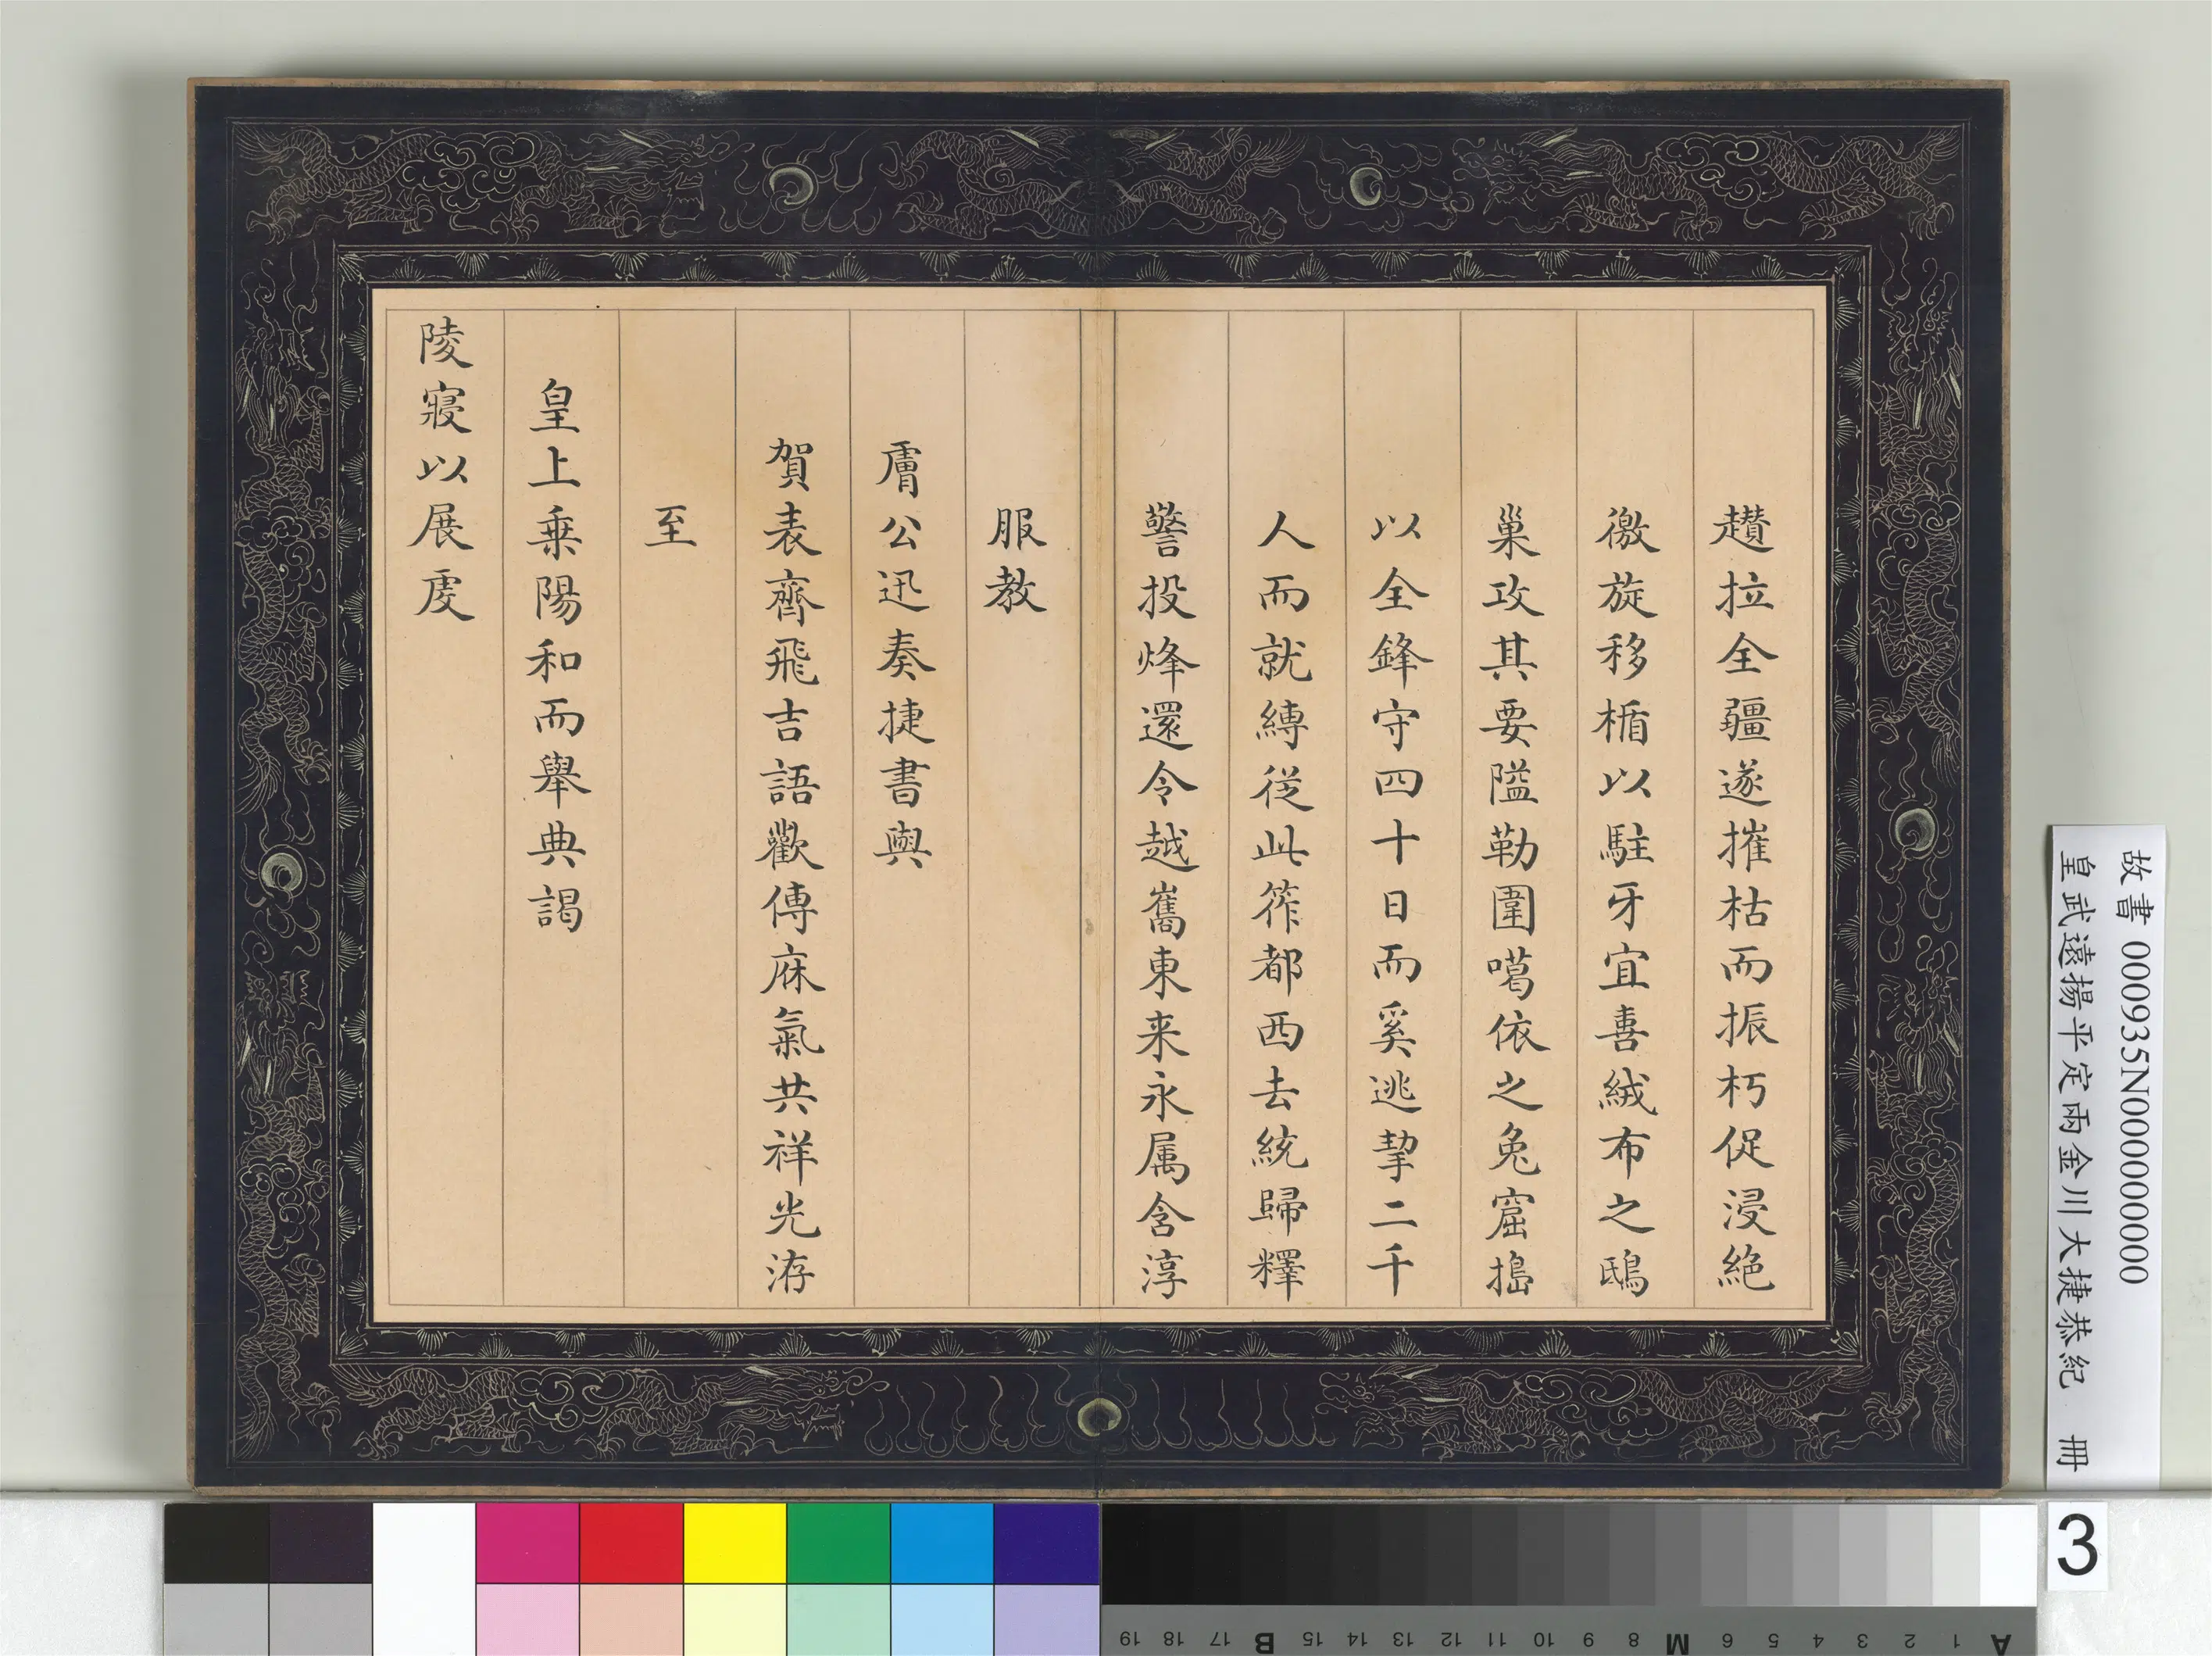 趲拉全疆遂摧枯而振朽促浸絶
徼旋移楯以駐牙宜喜絨布之鴟
巢攻其要隘勒圍噶依之兔窟搗
以全鋒守四十日而奚逃挈二千
人而就縛從此筰都西去統歸釋
警投烽還令越嶲東来永属含淳
服教
膚公迅奏捷書與
賀表齊飛吉語歡傳庥氣共祥光洊
至
皇上乗陽和而舉典謁
陵寢以展虔
故書 000935N000000000
皇武遠揚平定兩金川大捷恭紀 冊
3
A 1 2 3 4 5 6 M 8 9 10 11 12 13 14 15 B 17 18 19